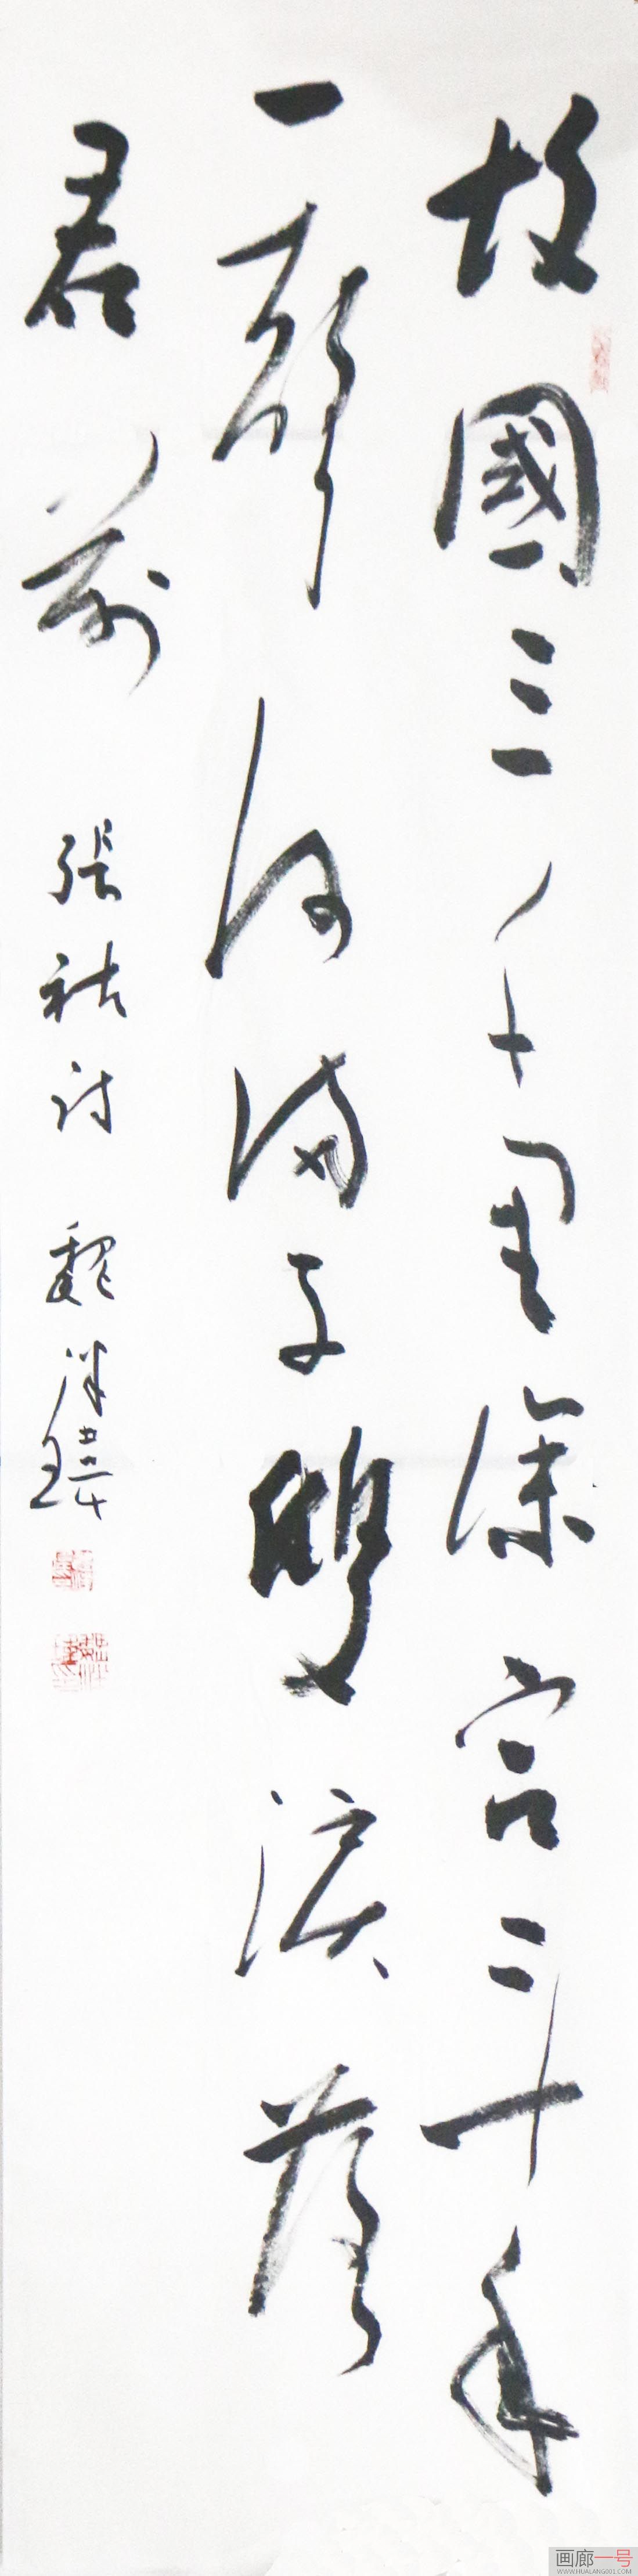 故國三千里深宮二十年
一聲何滿子雙淚落
君前 張祜詩 魏
画廊一号
WWW.HUALANG001.COM